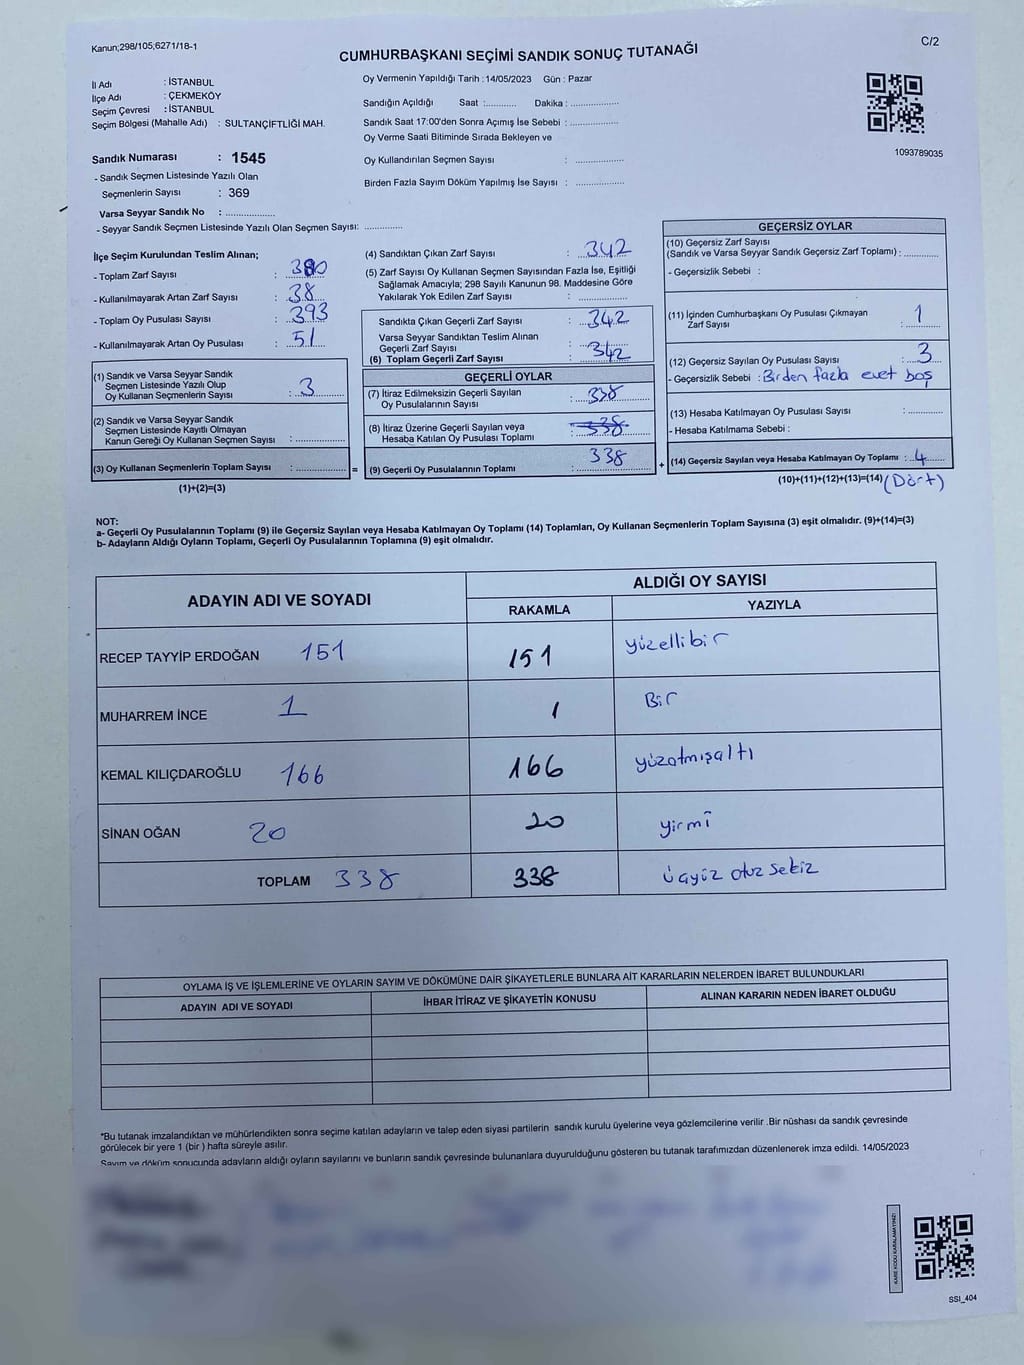 Kanun;298/105;6271/18-1
C/2
CUMHURBAŞKANI SEÇİMİ SANDIK SONUÇ TUTANAĞI
İl Adı : İSTANBUL
İlçe Adı : ÇEKMEKÖY
Seçim Çevresi : İSTANBUL
Seçim Bölgesi (Mahalle Adı) : SULTANÇİFTLİĞİ MAH.
Sandık Numarası : 1545
- Sandık Seçmen Listesinde Yazılı Olan
Seçmenlerin Sayısı : 369
Varsa Seyyar Sandık No : ................
- Seyyar Sandık Seçmen Listesinde Yazılı Olan Seçmen Sayısı: ............
Oy Vermenin Yapıldığı Tarih :14/05/2023 Gün : Pazar
Sandığın Açıldığı Saat :.......... Dakika : ...............
Sandık Saat 17:00'den Sonra Açımış İse Sebebi : ...............
Oy Verme Saati Bitiminde Sırada Bekleyen ve
Oy Kullandırılan Seçmen Sayısı : ...............
Birden Fazla Sayım Döküm Yapılmış İse Sayısı : ...............
1093789035
İlçe Seçim Kurulundan Teslim Alınan;
- Toplam Zarf Sayısı : 380
- Kullanılmayarak Artan Zarf Sayısı : 38
- Toplam Oy Pusulası Sayısı : 393
- Kullanılmayarak Artan Oy Pusulası : 51
(1) Sandık ve Varsa Seyyar Sandık
Seçmen Listesinde Yazılı Olup
Oy Kullanan Seçmenlerin Sayısı : 3
(2) Sandık ve Varsa Seyyar Sandık
Seçmen Listesinde Kayıtlı Olmayan
Kanun Gereği Oy Kullanan Seçmen Sayısı : ...............
(3) Oy Kullanan Seçmenlerin Toplam Sayısı : ............... =
(1)+(2)=(3)
(4) Sandıktan Çıkan Zarf Sayısı : 342
(5) Zarf Sayısı Oy Kullanan Seçmen Sayısından Fazla İse, Eşitliği
Sağlamak Amacıyla; 298 Sayılı Kanunun 98. Maddesine Göre
Yakılarak Yok Edilen Zarf Sayısı : ...............
Sandıkta Çıkan Geçerli Zarf Sayısı : 342
Varsa Seyyar Sandıktan Teslim Alınan
Geçerli Zarf Sayısı :
(6) Toplam Geçerli Zarf Sayısı : 342
GEÇERLİ OYLAR
(7) İtiraz Edilmeksizin Geçerli Sayılan
Oy Pusulalarının Sayısı : 338
(8) İtiraz Üzerine Geçerli Sayılan veya
Hesaba Katılan Oy Pusulası Toplamı : 338
(9) Geçerli Oy Pusulalarının Toplamı : 338 +
GEÇERSİZ OYLAR
(10) Geçersiz Zarf Sayısı
(Sandık ve Varsa Seyyar Sandık Geçersiz Zarf Toplamı) : ............
- Geçersizlik Sebebi :
(11) İçinden Cumhurbaşkanı Oy Pusulası Çıkmayan
Zarf Sayısı : 1
(12) Geçersiz Sayılan Oy Pusulası Sayısı : 3
- Geçersizlik Sebebi : Birden fazla evet boş
(13) Hesaba Katılmayan Oy Pusulası Sayısı : ............
- Hesaba Katılmama Sebebi :
(14) Geçersiz Sayılan veya Hesaba Katılmayan Oy Toplamı : 4
(10)+(11)+(12)+(13)=(14) (Dört)
NOT:
a- Geçerli Oy Pusulalarının Toplamı (9) ile Geçersiz Sayılan veya Hesaba Katılmayan Oy Toplamı (14) Toplamları, Oy Kullanan Seçmenlerin Toplam Sayısına (3) eşit olmalıdır. (9)+(14)=(3)
b- Adayların Aldığı Oyların Toplamı, Geçerli Oy Pusulalarının Toplamına (9) eşit olmalıdır.
ADAYIN ADI VE SOYADI
ALDIĞI OY SAYISI
RAKAMLA YAZIYLA
RECEP TAYYİP ERDOĞAN 151 151 yüzellibir
MUHARREM İNCE 1 1 Bir
KEMAL KILIÇDAROĞLU 166 166 yüzatmışaltı
SİNAN OĞAN 20 20 yirmi
TOPLAM 338 338 üçyüz otuz sekiz
OYLAMA İŞ VE İŞLEMLERİNE VE OYLARIN SAYIM VE DÖKÜMÜNE DAİR ŞİKAYETLERLE BUNLARA AİT KARARLARIN NELERDEN İBARET BULUNDUKLARI
ADAYIN ADI VE SOYADI İHBAR İTİRAZ VE ŞİKAYETİN KONUSU ALINAN KARARIN NEDEN İBARET OLDUĞU
*Bu tutanak imzalandıktan ve mühürlendikten sonra seçime katılan adayların ve talep eden siyasi partilerin sandık kurulu üyelerine veya gözlemcilerine verilir .Bir nüshası da sandık çevresinde
görülecek bir yere 1 (bir ) hafta süreyle asılır.
Sayım ve döküm sonucunda adayların aldığı oyların sayılarını ve bunların sandık çevresinde bulunanlara duyurulduğunu gösteren bu tutanak tarafımızdan düzenlenerek imza edildi. 14/05/2023
KARE KODU KARALAMAYINIZ!
SSI_404